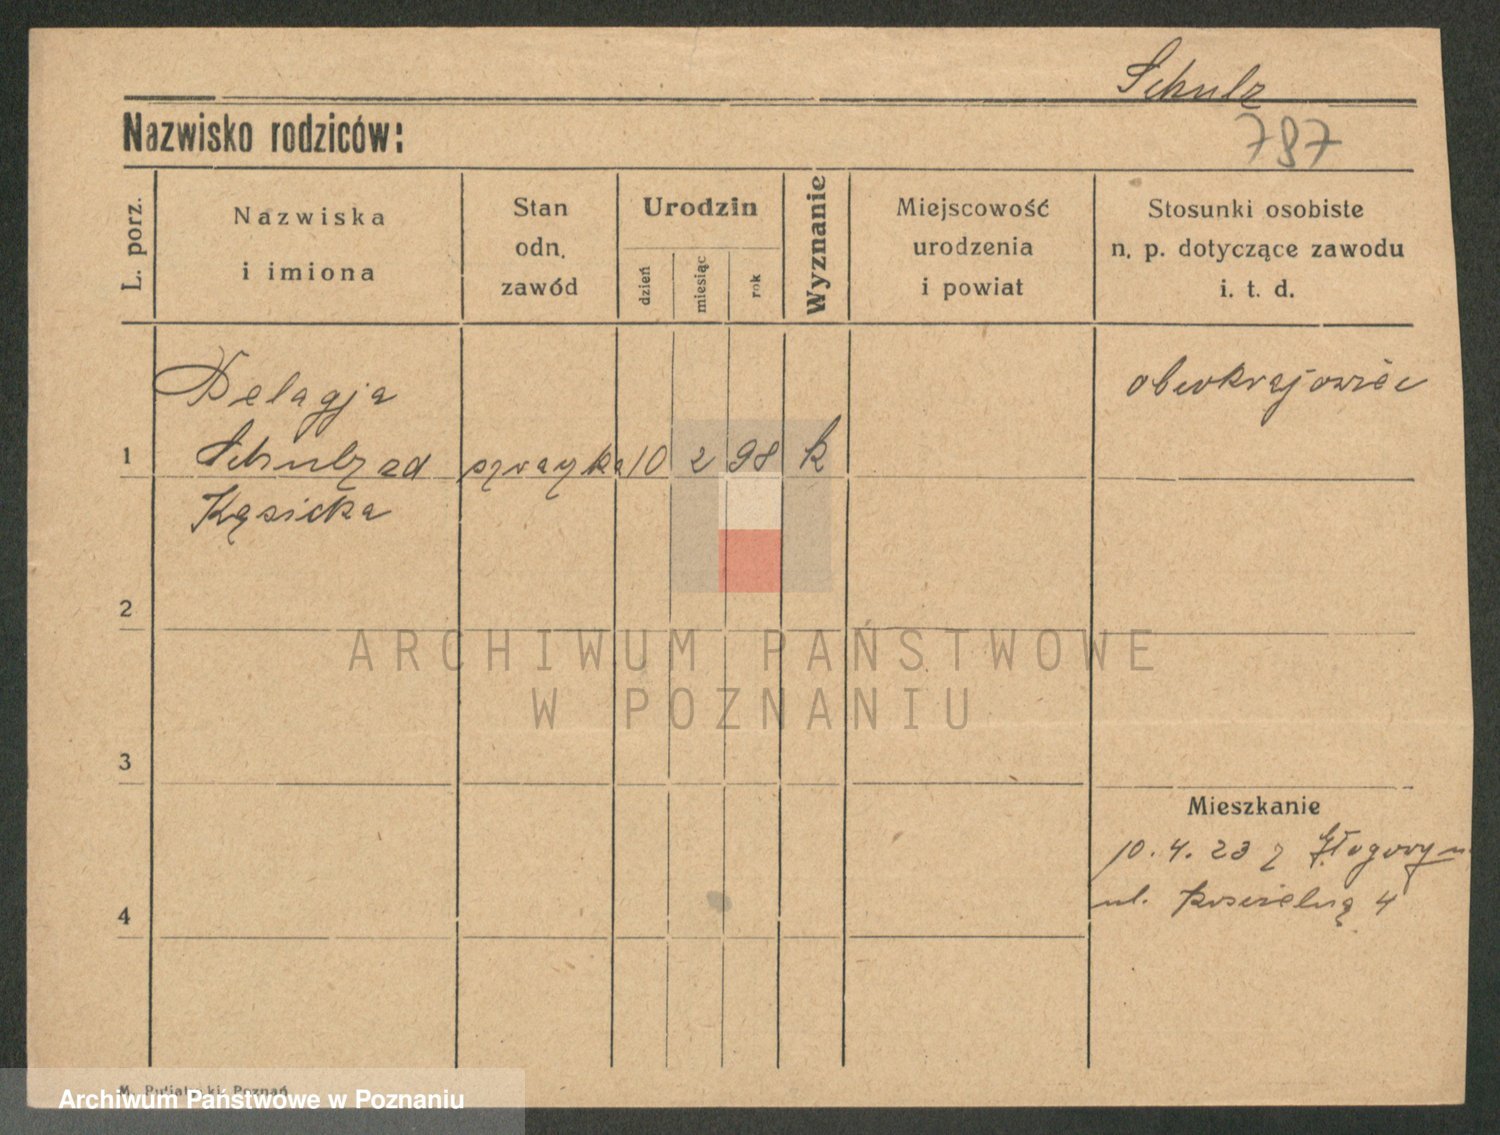 Schulz
Nazwisko rodziców:
787
L. porz.
Nazwiska
i imiona
Stan
odn.
zawód
Urodzin
dzień
miesiąc
rok
Wyznanie
Miejscowość
urodzenia
i powiat
Stosunki osobiste
n. p. dotyczące zawodu
i. t. d.
Pelagja
obcokrajowiec
1 Schulz 10 2 98 k
Kąsicka
2
ARCHIWUM PAŃSTWOWE
W POZNANIU
3
Mieszkanie
10. 4. 23 z
ul. 4
4
Poznań
Archiwum Państwowe w Poznaniu